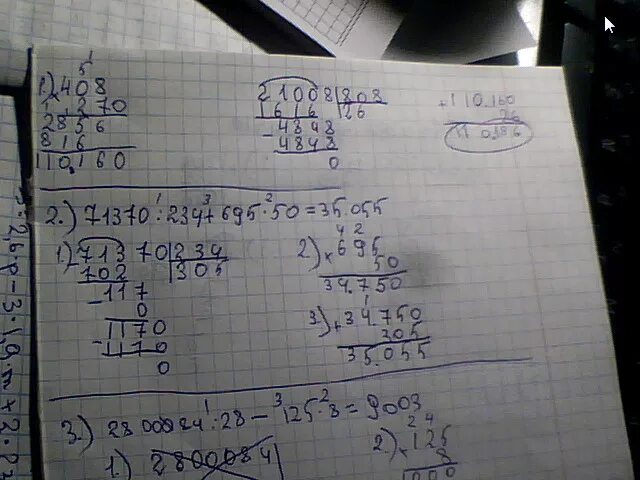 1) 408
270
2856
816
110.160
21008 | 808
1616 | 26
- 4848
4848
0
+ 110.160
26
110.186
2.) 71370 : 234 + 695 · 50 = 35.055
1) 71370 | 234
702 | 305
- 117
0
1170
- 1170
0
2) × 695
50
34.750
3) + 34.750
305
35.055
3.) 2800084 : 28 - 125 · 8 = 9003
1.) 2800084
2.) × 125
8
1000